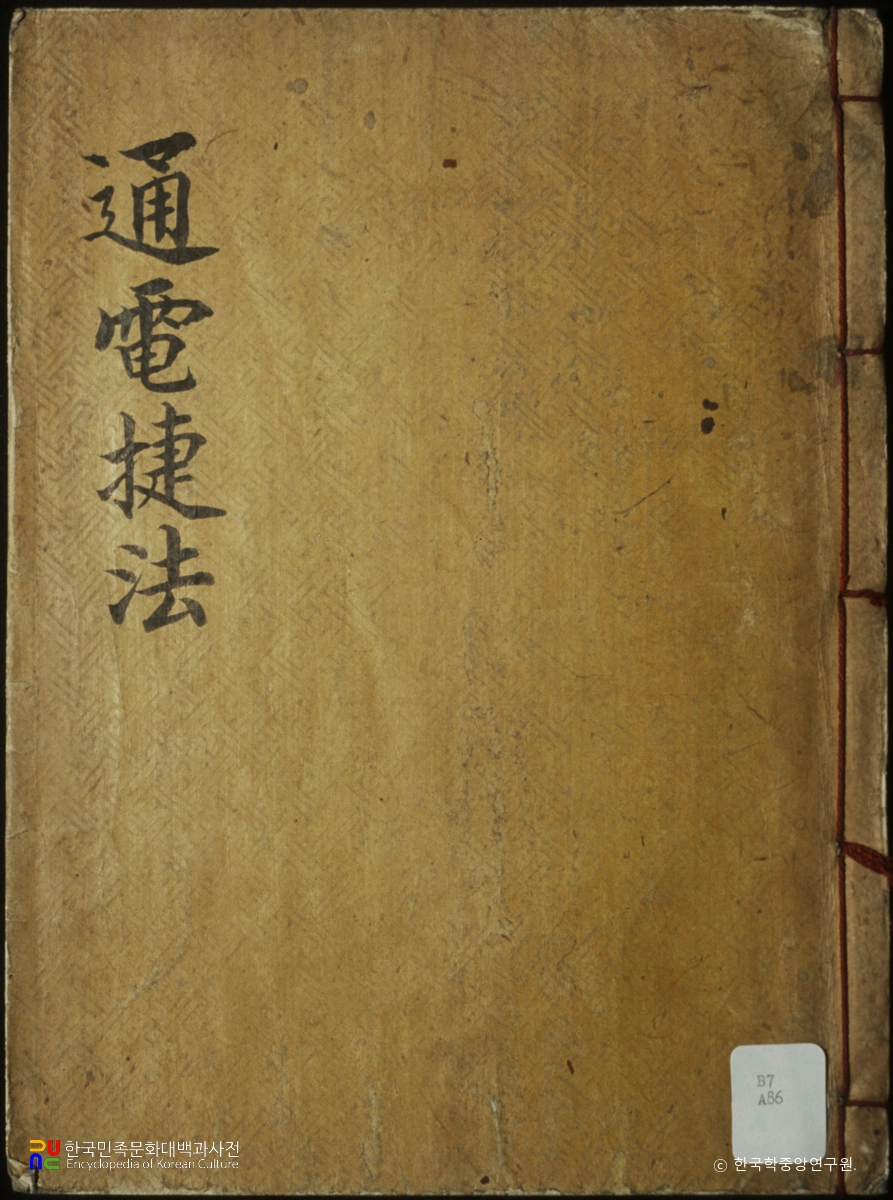 通電捷法
B7
A86
한국민족문화대백과사전
Encyclopedia of Korean Culture
© 한국학중앙연구원.